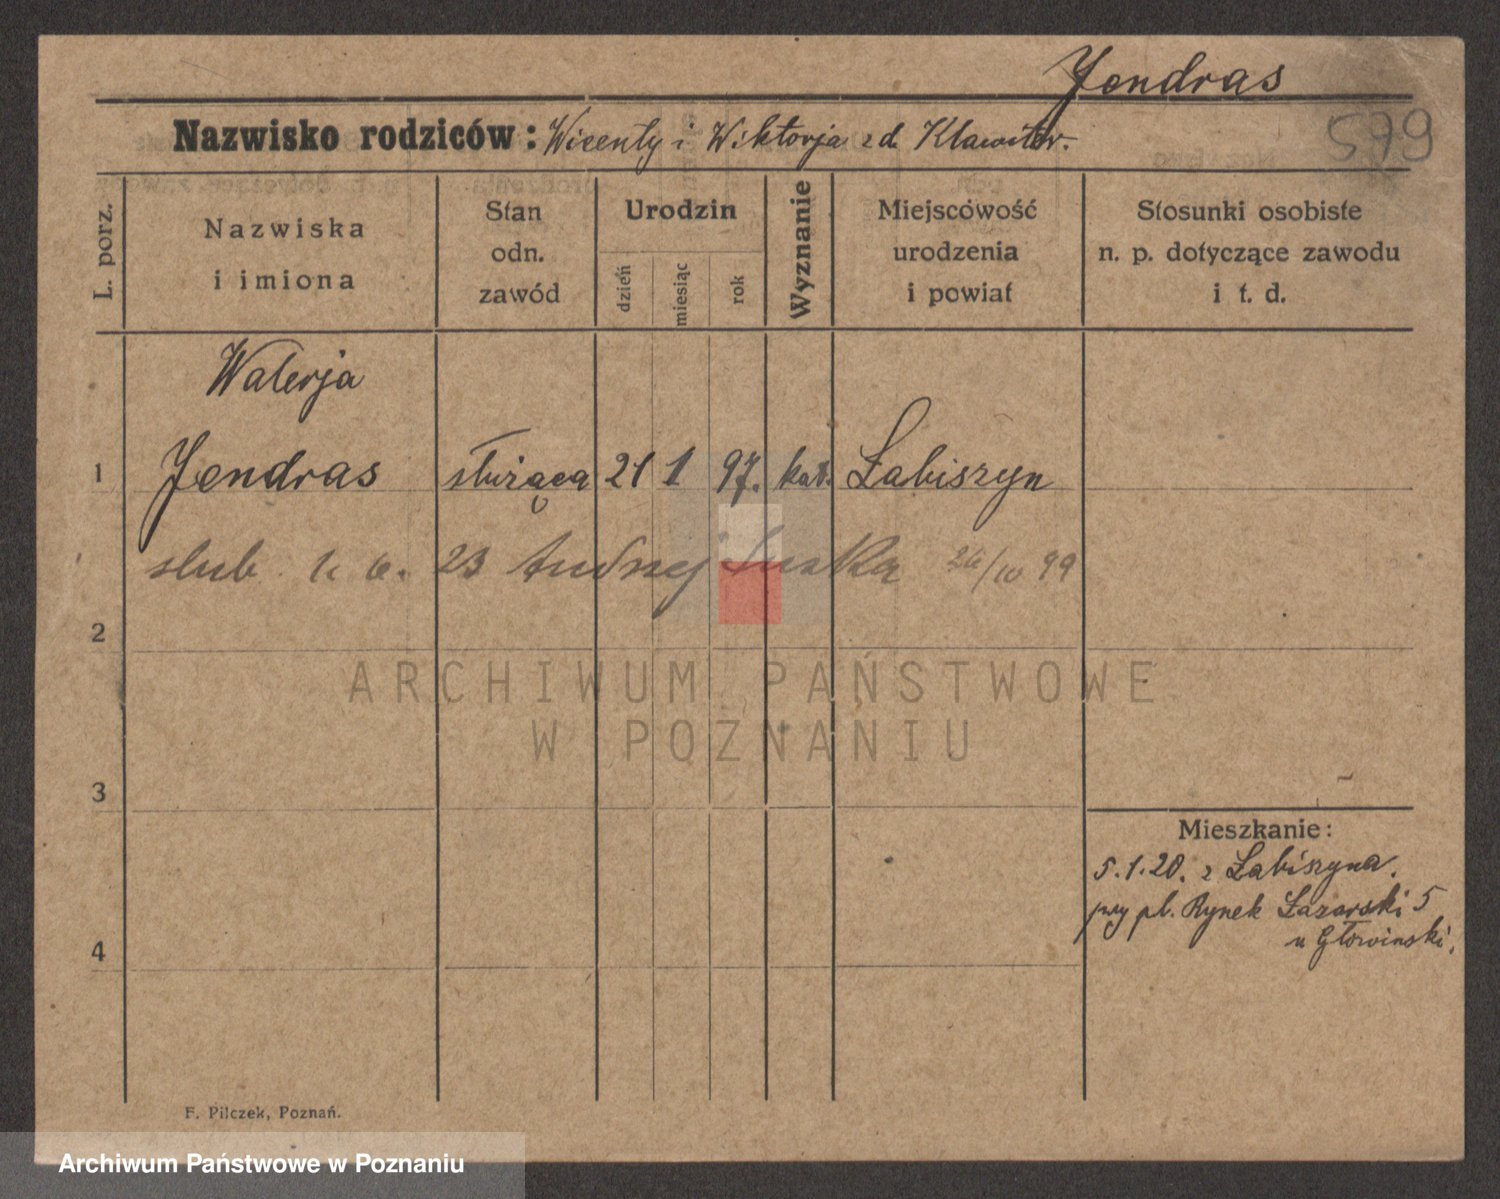 Jendras
579
Nazwisko rodziców: Wicenty i Wiktorja zd. Klawiter.
L. porz.
Nazwiska
i imiona
Stan
odn.
zawód
Urodzin
dzień
miesiąc
rok
Wyznanie
Miejscowość
urodzenia
i powiat
Stosunki osobiste
n. p. dotyczące zawodu
i t. d.
Walerja
1 Jendras służąca 21 1 97. kat. Łabiszyn
slub 23 Andrzej 99
2
ARCHIWUM PAŃSTWOWE
W POZNANIU
3
Mieszkanie:
5.1.20. z Łabiszyna.
przy pl. Rynek Łazarski 5
u Głowinski.
4
F. Pilczek, Poznań.
Archiwum Państwowe w Poznaniu